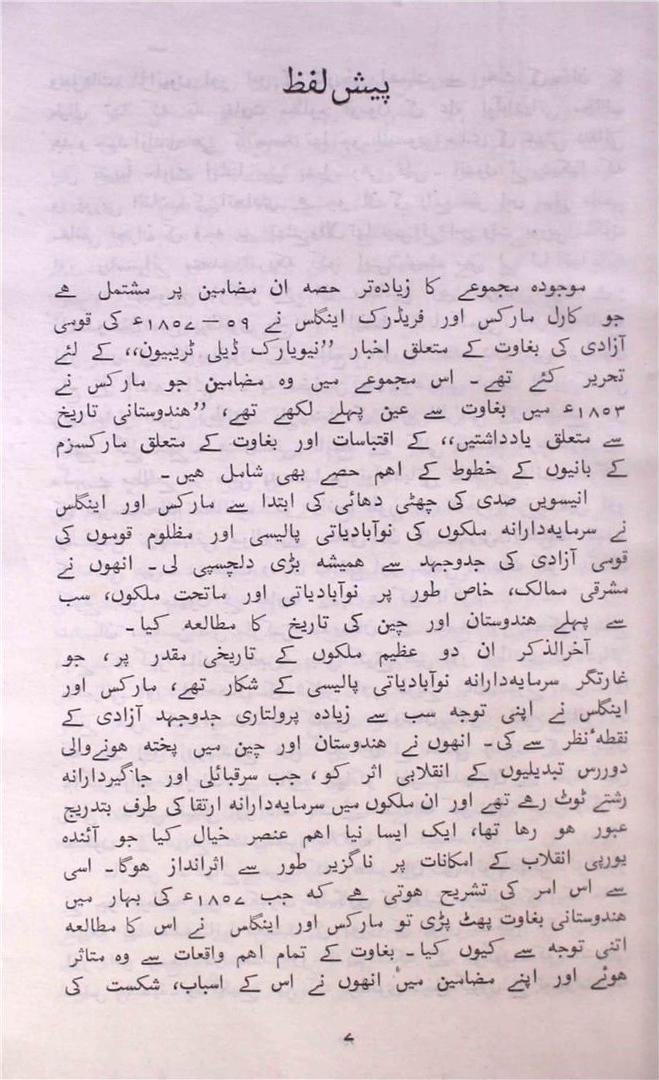 پیش لفظ
موجودہ مجموعے کا زیادہ‌تر حصہ ان مضامین پر مشتمل ہے
جو کارل مارکس اور فریڈرک اینگلس نے ۵۹—۱۸۵۷ء کی قومی
آزادی کی بغاوت کے متعلق اخبار ’’نیویارک ڈیلی ٹریبیون،، کے لئے
تحریر کئے تھے۔ اس مجموعے میں وہ مضامین جو مارکس نے
۱۸۵۳ء میں بغاوت سے عین پہلے لکھے تھے، ’’ھندوستانی تاریخ
سے متعلق یادداشتیں،، کے اقتباسات اور بغاوت کے متعلق مارکسزم
کے بانیوں کے خطوط کے اہم حصے بھی شامل ہیں۔
انیسویں صدی کی چھٹی دھائی کی ابتدا سے مارکس اور اینگلس
نے سرمایہ‌دارانہ ملکوں کی نوآبادیاتی پالیسی اور مظلوم قوموں کی
قومی آزادی کی جدوجہد سے ہمیشہ بڑی دلچسپی لی۔ انھوں نے
مشرقی ممالک، خاص طور پر نوآبادیاتی اور ماتحت ملکوں، سب
سے پہلے ھندوستان اور چین کی تاریخ کا مطالعہ کیا۔
آخرالذکر ان دو عظیم ملکوں کے تاریخی مقدر پر، جو
غارتگر سرمایہ‌دارانہ نوآبادیاتی پالیسی کے شکار تھے، مارکس اور
اینگلس نے اپنی توجہ سب سے زیادہ پرولتاری جدوجہد آزادی کے
نقطہ ٔ نظر سے کی۔ انھوں نے ھندوستان اور چین میں پختہ ہونے‌والی
دوررس تبدیلیوں کے انقلابی اثر کو، جب سرقبائلی اور جاگیردارانہ
رشتے ٹوٹ رہے تھے اور ان ملکوں میں سرمایہ‌دارانہ ارتقا کی طرف بتدریج
عبور ہو رہا تھا، ایک ایسا نیا اہم عنصر خیال کیا جو آئندہ
یورپی انقلاب کے امکانات پر ناگزیر طور سے اثرانداز ہوگا۔ اسی
سے اس امر کی تشریح ہوتی ہے کہ جب ۱۸۵۷ء کی بہار میں
ھندوستانی بغاوت پھٹ پڑی تو مارکس اور اینگلس نے اس کا مطالعہ
اتنی توجہ سے کیوں کیا۔ بغاوت کے تمام اہم واقعات سے وہ متاثر
ہوئے اور اپنے مضامین میں انھوں نے اس کے اسباب، شکست کی
۷